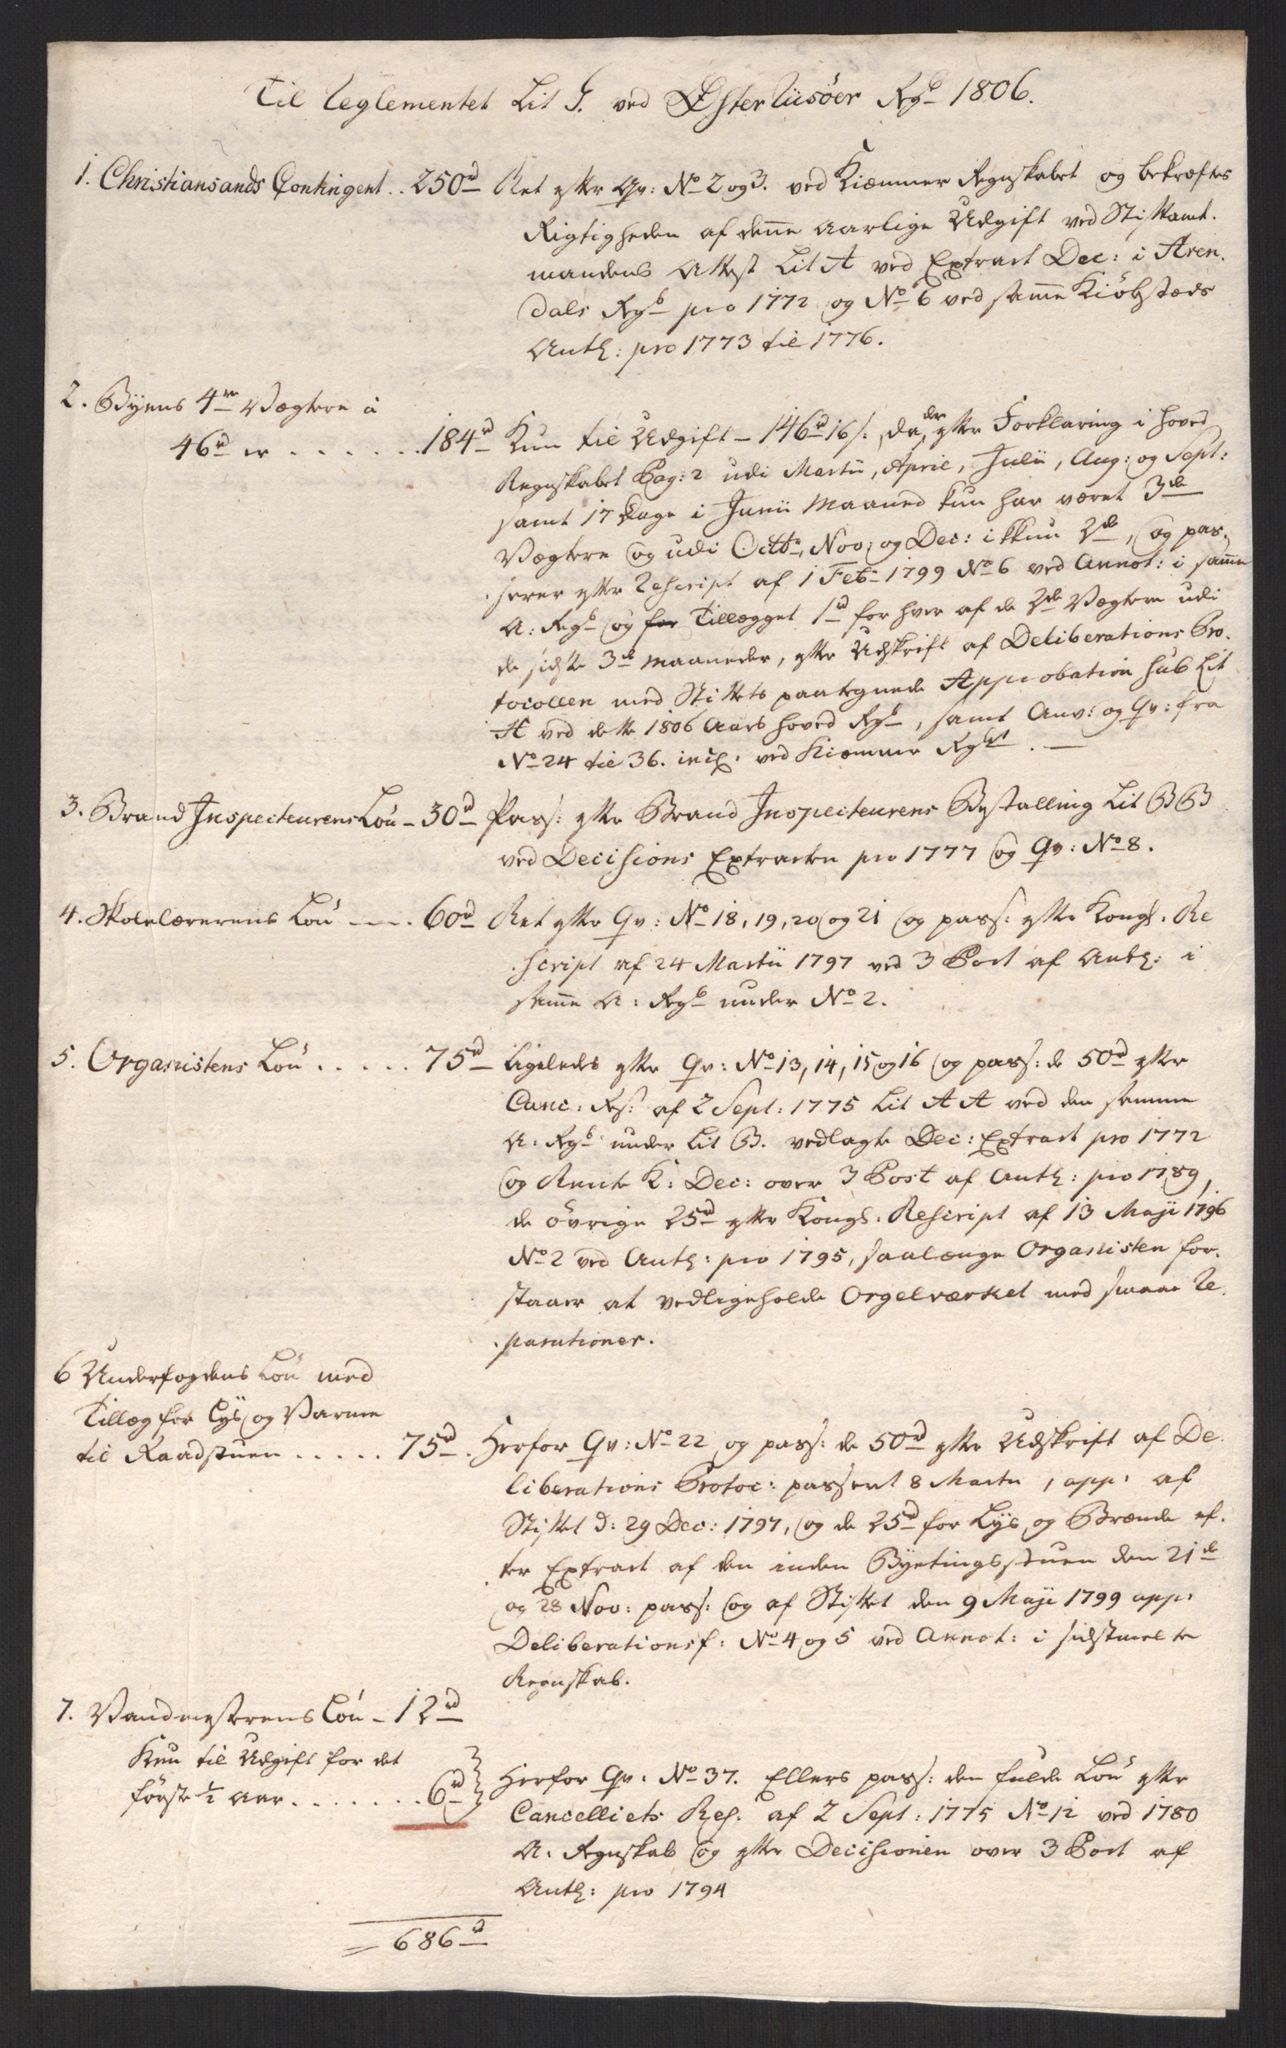 Til Reglementet Lit J. ved Øster Riisöer Rgb 1806.
1. Christiansands Contingent .. 250rd Ret efter Qv: No 2 og 3. ved Kiæmner Regnskabet og bekræftes
Rigtigheden af denne aarlige Udgift ved Stiftamt.
mandens Attest Lit A ved Extract Dec: i Aren.
dals Rgb pro 1772 og No 6 ved samme Kiöbstæds
Anth: pro 1773 til 1776.
2. Byens 4re Vægtere á
46rd er . . . . . . . 184rd Kun til Udgift - 146rd 16s:, da der efter Forklaring i Hoved
Regnskabet Pag: 2 udi Martii, April, Julii, Aug: og Sept:
samt 17 Dage i Junii Maaned kun har været 3de
Vægtere og udi Octbr, Nov: og Dec: ikkun 2de, og pas.
serer efter Rescript af 1 Febr 1799 No 6 ved Annot: i samme
A: Rgb og for Tillægget 1rd for hver af de 2de Vægtere udi
de sidste 3de Maaneder, efter Udskrift af Deliberations Pro.
tocollen med Stiftets paategnede Approbation sub Lit
A ved dette 1806 Aars Hoved Rgb, samt Anv: og Qv: fra
No 24 til 36. incl. ved Kiæmner Rgbt. —
3. Brand Inspecteurens Lön - 30rd Pass: efter Brand Inspecteurens Bestalling Lit BB
ved Decisions Extracten pro 1777 og Qv: No 8.
4. Skolelærerens Lön ---- 60rd Ret efter Qv: No 18, 19, 20 og 21 og pass: efter Kongl. Re
script af 24 Martii 1797 ved 3 Post af Anth: i
samme A: Rgb under No 2.
5. Organistens Lön . . . . . 75rd Ligeledes efter Qv: No 13, 14, 15 og 16 og pass: de 50rd efter
Canc: Res: af 2 Sept: 1775 Lit AA ved den samme
A: Rgb under Lit B. vedlagte Dec: Extract pro 1772
og Rente K: Dec: over 3 Post af Anth: pro 1789,
de övrige 25rd efter Kongl: Rescript af 13 Maji 1796
No 2 ved Anth: pro 1795, saalænge Organisten for.
staaer at vedligeholde Orgelværket med smaae Re.
parationer.
6 Underfogdens Lön med
Tillæg for Lys og Varme
til Raadstuen . . . . . 75rd. Herfor Qv: No 22 og pass: de 50rd efter Udskrift af De.
liberations Protoc: passeret 8 Martii, app: af
Stiftet d: 29 Dec: 1797, og de 25rd for Lys og Brænde ef.
ter Extract af den inden Byetingsstuen den 21de
og 28 Nov: pass: og af Stiftet den 9 Maji 1799 app:
Deliberationsf: No 4 og 5 ved Annot: i sidstmeldte
Regnskab.
7. Vandmesterens Lön - 12rd
Kun til Udgift for det
förste 1/2 Aar . . . . . . . 6rd Herfor Qv: No 37. Ellers pass: den fulde Lön efter
Cancelliets Res. af 2 Sept: 1775 No 12 ved 1780
A: Regnskab og efter Decisionen over 3 Post af
Anth: pro 1794
= 686rd